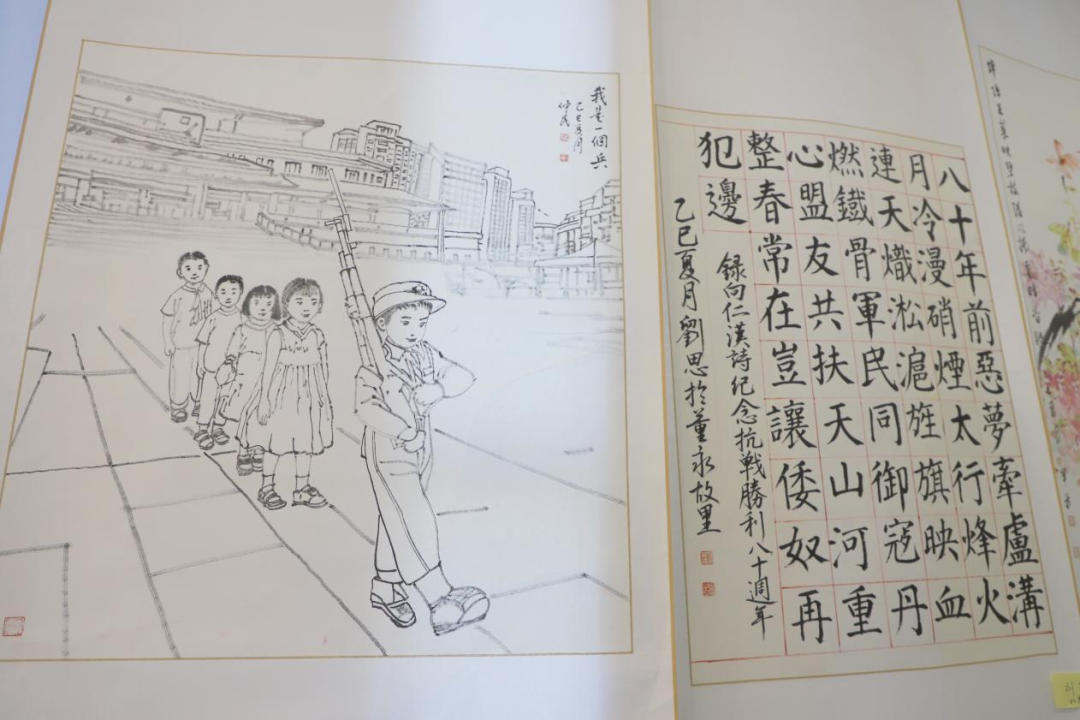 我是一個兵
乙巳
八十年前惡夢牽盧溝
月冷漫硝煙太行烽火
連天熾淞滬旌旗映血
燃鐵骨軍民同御寇丹
心盟友共扶天山河重
整春常在豈讓倭奴再
犯邊
録向仁漢詩紀念抗戦勝利八十週年
乙巳夏月劉思於董永故里